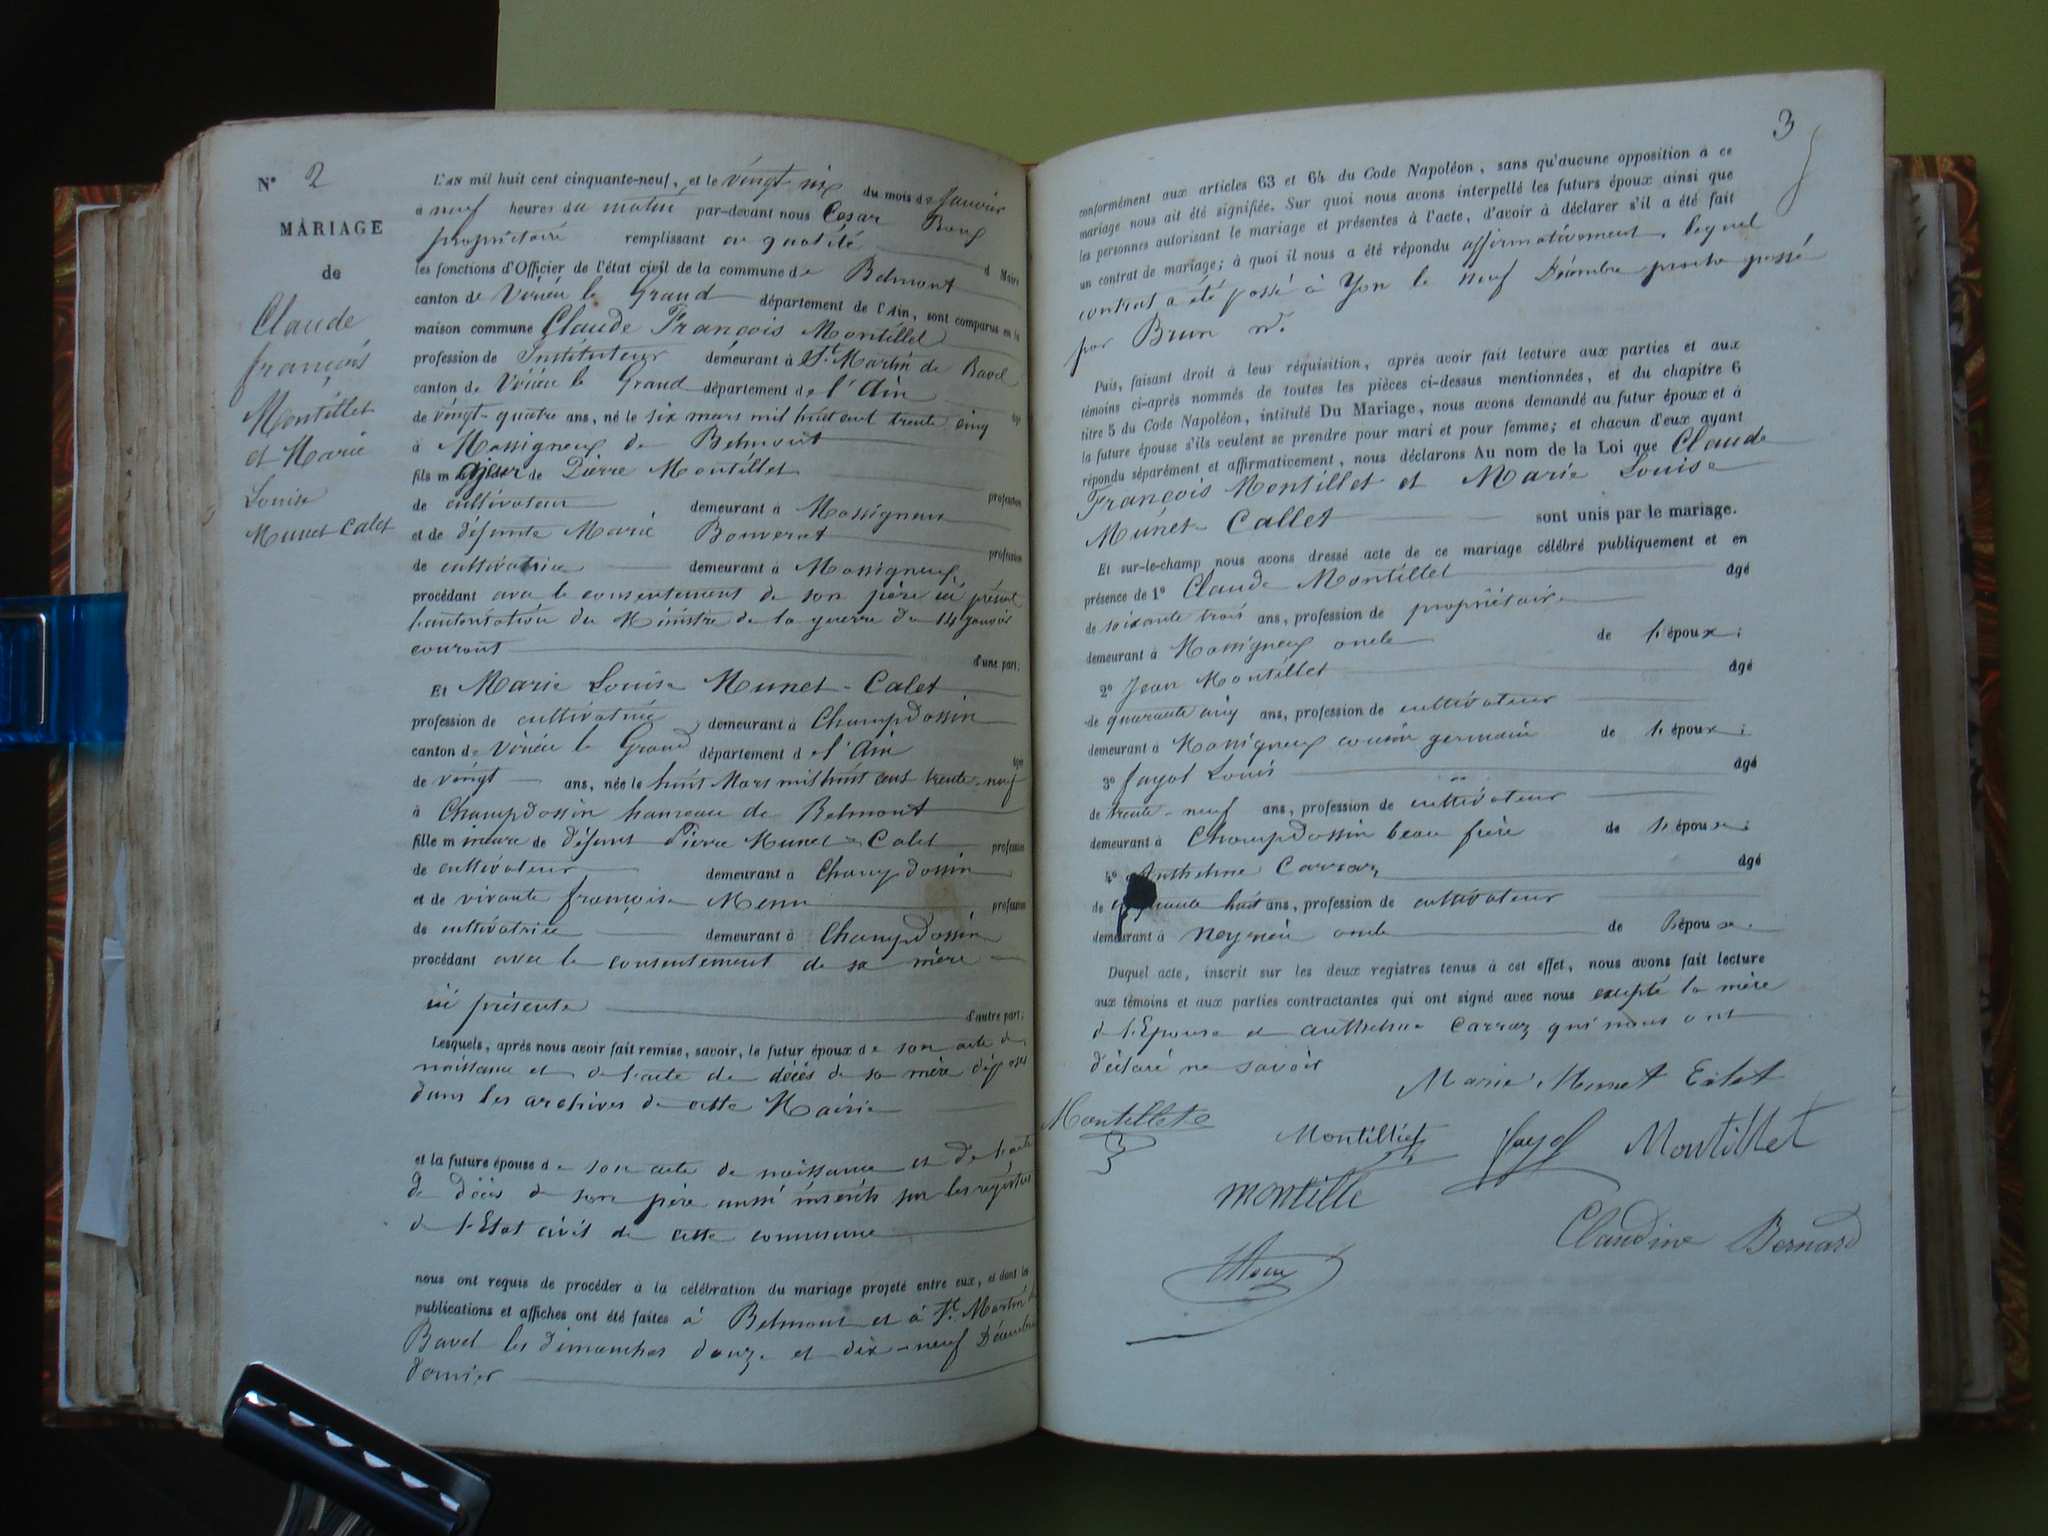 N° 2
MARIAGE
de
Claude
françois
Montillet
et Marie
Louise
Munet Calet
L'AN mil huit cent cinquante-neuf, et le vingt six du mois de Janvier
à neuf heures du matin par-devant nous Cesar
propriétaire remplissant en qualité d Maire
les fonctions d'Officier de l'état civil de la commune de Belmont
canton de Virieu le Grand département de l'Ain, sont comparus en la
maison commune Claude François Montillet
profession de Instituteur demeurant à St Martin de Bavel
canton de Virieu le Grand département de l'Ain âgé
de vingt-quatre ans, né le six mars mil huit cent trente cinq
à Massigneux de Belmont
fils majeur de Pierre Montillet profession
de cultivateur demeurant à Massigneux
et de défunte Marie Bonverat profession
de cultivatrice demeurant à Massigneux
procédant avec le consentement de son père ici présent
l'autorisation du Ministre de la guerre du 14 janvier
courant d'une part;
Et Marie Louise Munet-Calet
profession de cultivatrice demeurant à Champdossin
canton de Virieu le Grand département de l'Ain âgé
de vingt ans, née le huit Mars mil huit cent trente-neuf
à Champdossin hameau de Belmont
fille mineure de défunt Pierre Munet-Calet profession
de cultivateur demeurant à Champdossin
et de vivante françoise profession
de cultivatrice demeurant à Champdossin
procédant avec le consentement de sa mère
ici présente d'autre part;
Lesquels, après nous avoir fait remise, savoir, le futur époux de son acte de
naissance et de l'acte de décès de sa mère déposés
dans les archives de cette Mairie
et la future épouse de son acte de naissance et de l'acte
de décès de son père aussi inscrits sur les registres
de l'Etat civil de cette commune
nous ont requis de procéder à la célébration du mariage projeté entre eux, et dont les
publications et affiches ont été faites à Belmont et à St Martin de
Bavel les dimanches douze et dix-neuf Décembre
dernier
3
conformément aux articles 63 et 64 du Code Napoléon, sans qu'aucune opposition à ce
mariage nous ait été signifiée. Sur quoi nous avons interpellé les futurs époux ainsi que
les personnes autorisant le mariage et présentes à l'acte, d'avoir à déclarer s'il a été fait
un contrat de mariage; à quoi il nous a été répondu affirmativement, lequel
contrat a été passé à Yon le neuf Décembre proche passé
par Brun nre.
Puis, faisant droit à leur réquisition, après avoir fait lecture aux parties et aux
témoins ci-après nommés de toutes les pièces ci-dessus mentionnées, et du chapitre 6
titre 5 du Code Napoléon, intitulé Du Mariage, nous avons demandé au futur époux et à
la future épouse s'ils veulent se prendre pour mari et pour femme; et chacun d'eux ayant
répondu séparément et affirmativement, nous déclarons Au nom de la Loi que Claude
François Montillet et Marie Louise
Munet-Callet sont unis par le mariage.
Et sur-le-champ nous avons dressé acte de ce mariage célébré publiquement et en
présence de 1° Claude Montillet âgé
de soixante trois ans, profession de propriétaire
demeurant à Massigneux oncle de l'époux;
2° Jean Montillet âgé
de quarante cinq ans, profession de cultivateur
demeurant à Massigneux cousin germain de l'époux;
3° fayol Louis âgé
de trente-neuf ans, profession de cultivateur
demeurant à Champdossin beau frère de l'époux;
4° Anthelme Carraz âgé
de cinquante huit ans, profession de cultivateur
demeurant à Neyrieu oncle de l'époux.
Duquel acte, inscrit sur les deux registres tenus à cet effet, nous avons fait lecture
aux témoins et aux parties contractantes qui ont signé avec nous excepté la mère
de l'Epouse et anthelme Carraz qui nous ont
déclaré ne savoir
Marie Munet Calet
Montillet
Montillet
fayol
Montillet
montille
Claudine Bernard